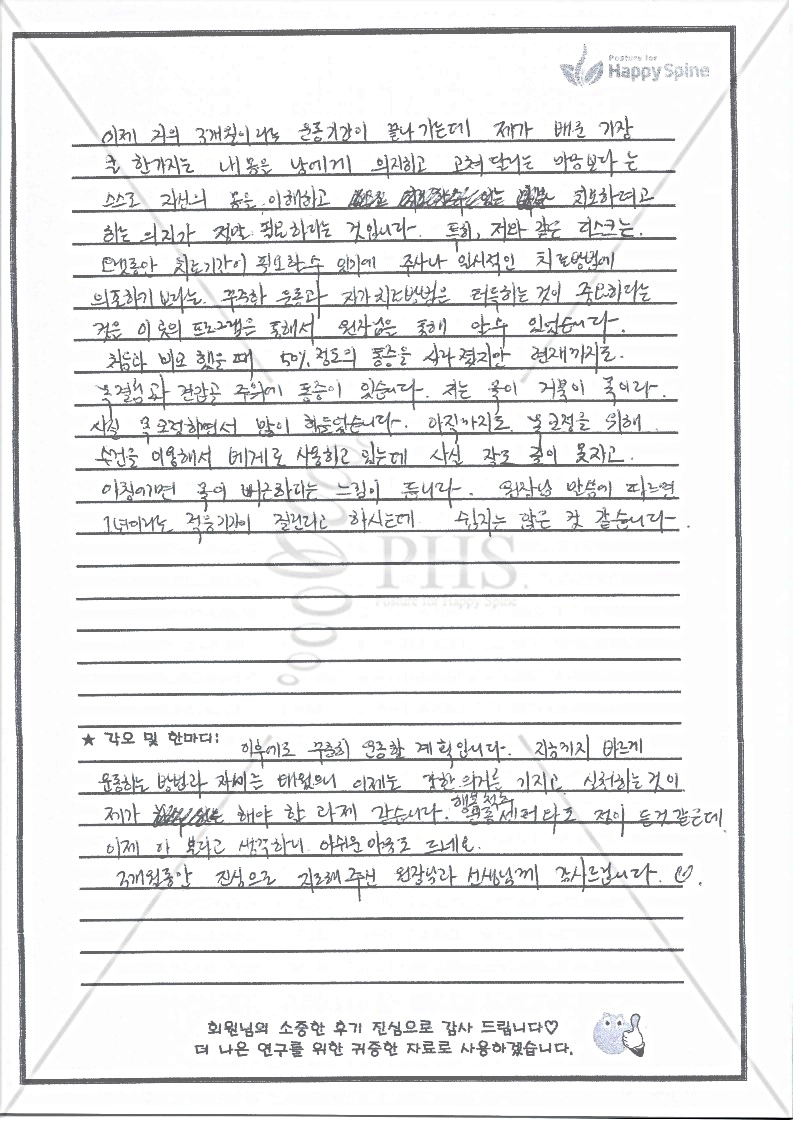 Posture for
Happy Spine
이제 거의 3개월이라는 운동기간이 끝나 가는데 제가 배운 가장
큰 한가지는 내 몸을 남에게 의지하고 고쳐 달라는 마음보다는
스스로 자신의 몸을 이해하고 치료하려고
하는 의지가 정말 필요하다는 것입니다. 특히, 저와 같은 디스크는.
오랫동안 치료기간이 필요할수 있기에 주사나 일시적인 치료방법에
의존하기 보다는. 꾸준한 운동과 자가치료방법을 터득하는것이 중요하다는
것을 이 곳의 프로그램을 통해서 원장님을 통해 알수 있었습니다.
처음과 비교 했을 때 50% 정도의 통증은 사라졌지만 현재까지도.
견갑골 주위에 통증이 있습니다. 저는 목이 거북이 목이라.
사실 목교정하면서 많이 힘들었습니다. 아직까지도 목교정을 위해
수건을 이용해서 베게로 사용하고 있는데 사실 잠도 깊이 못자고.
아침이면 목이 뻐근하다는 느낌이 듭니다. 원장님 말씀에 따르면
1년이라는 적응기간이 걸린다고 하시는데 쉽지는 않은 것 같습니다.
PHS.
Posture for Happy Spine
★ 각오 및 한마디: 이후에도 꾸준히 운동할 계획입니다. 지금까지 바르게
운동하는 방법과 자세는 배웠으니 이제는 강한 의지를 가지고 실천하는것이
제가 해야 할 과제 같습니다. 행복척추 운동센터와도 정이 든것같은데
이제 안 본다고 생각하니 아쉬운마음도 드네요.
3개월동안 진심으로 지도해주신 원장님과 선생님께 감사드립니다. ♡.
회원님의 소중한 후기 진심으로 감사 드립니다♡
더 나은 연구를 위한 귀중한 자료로 사용하겠습니다.